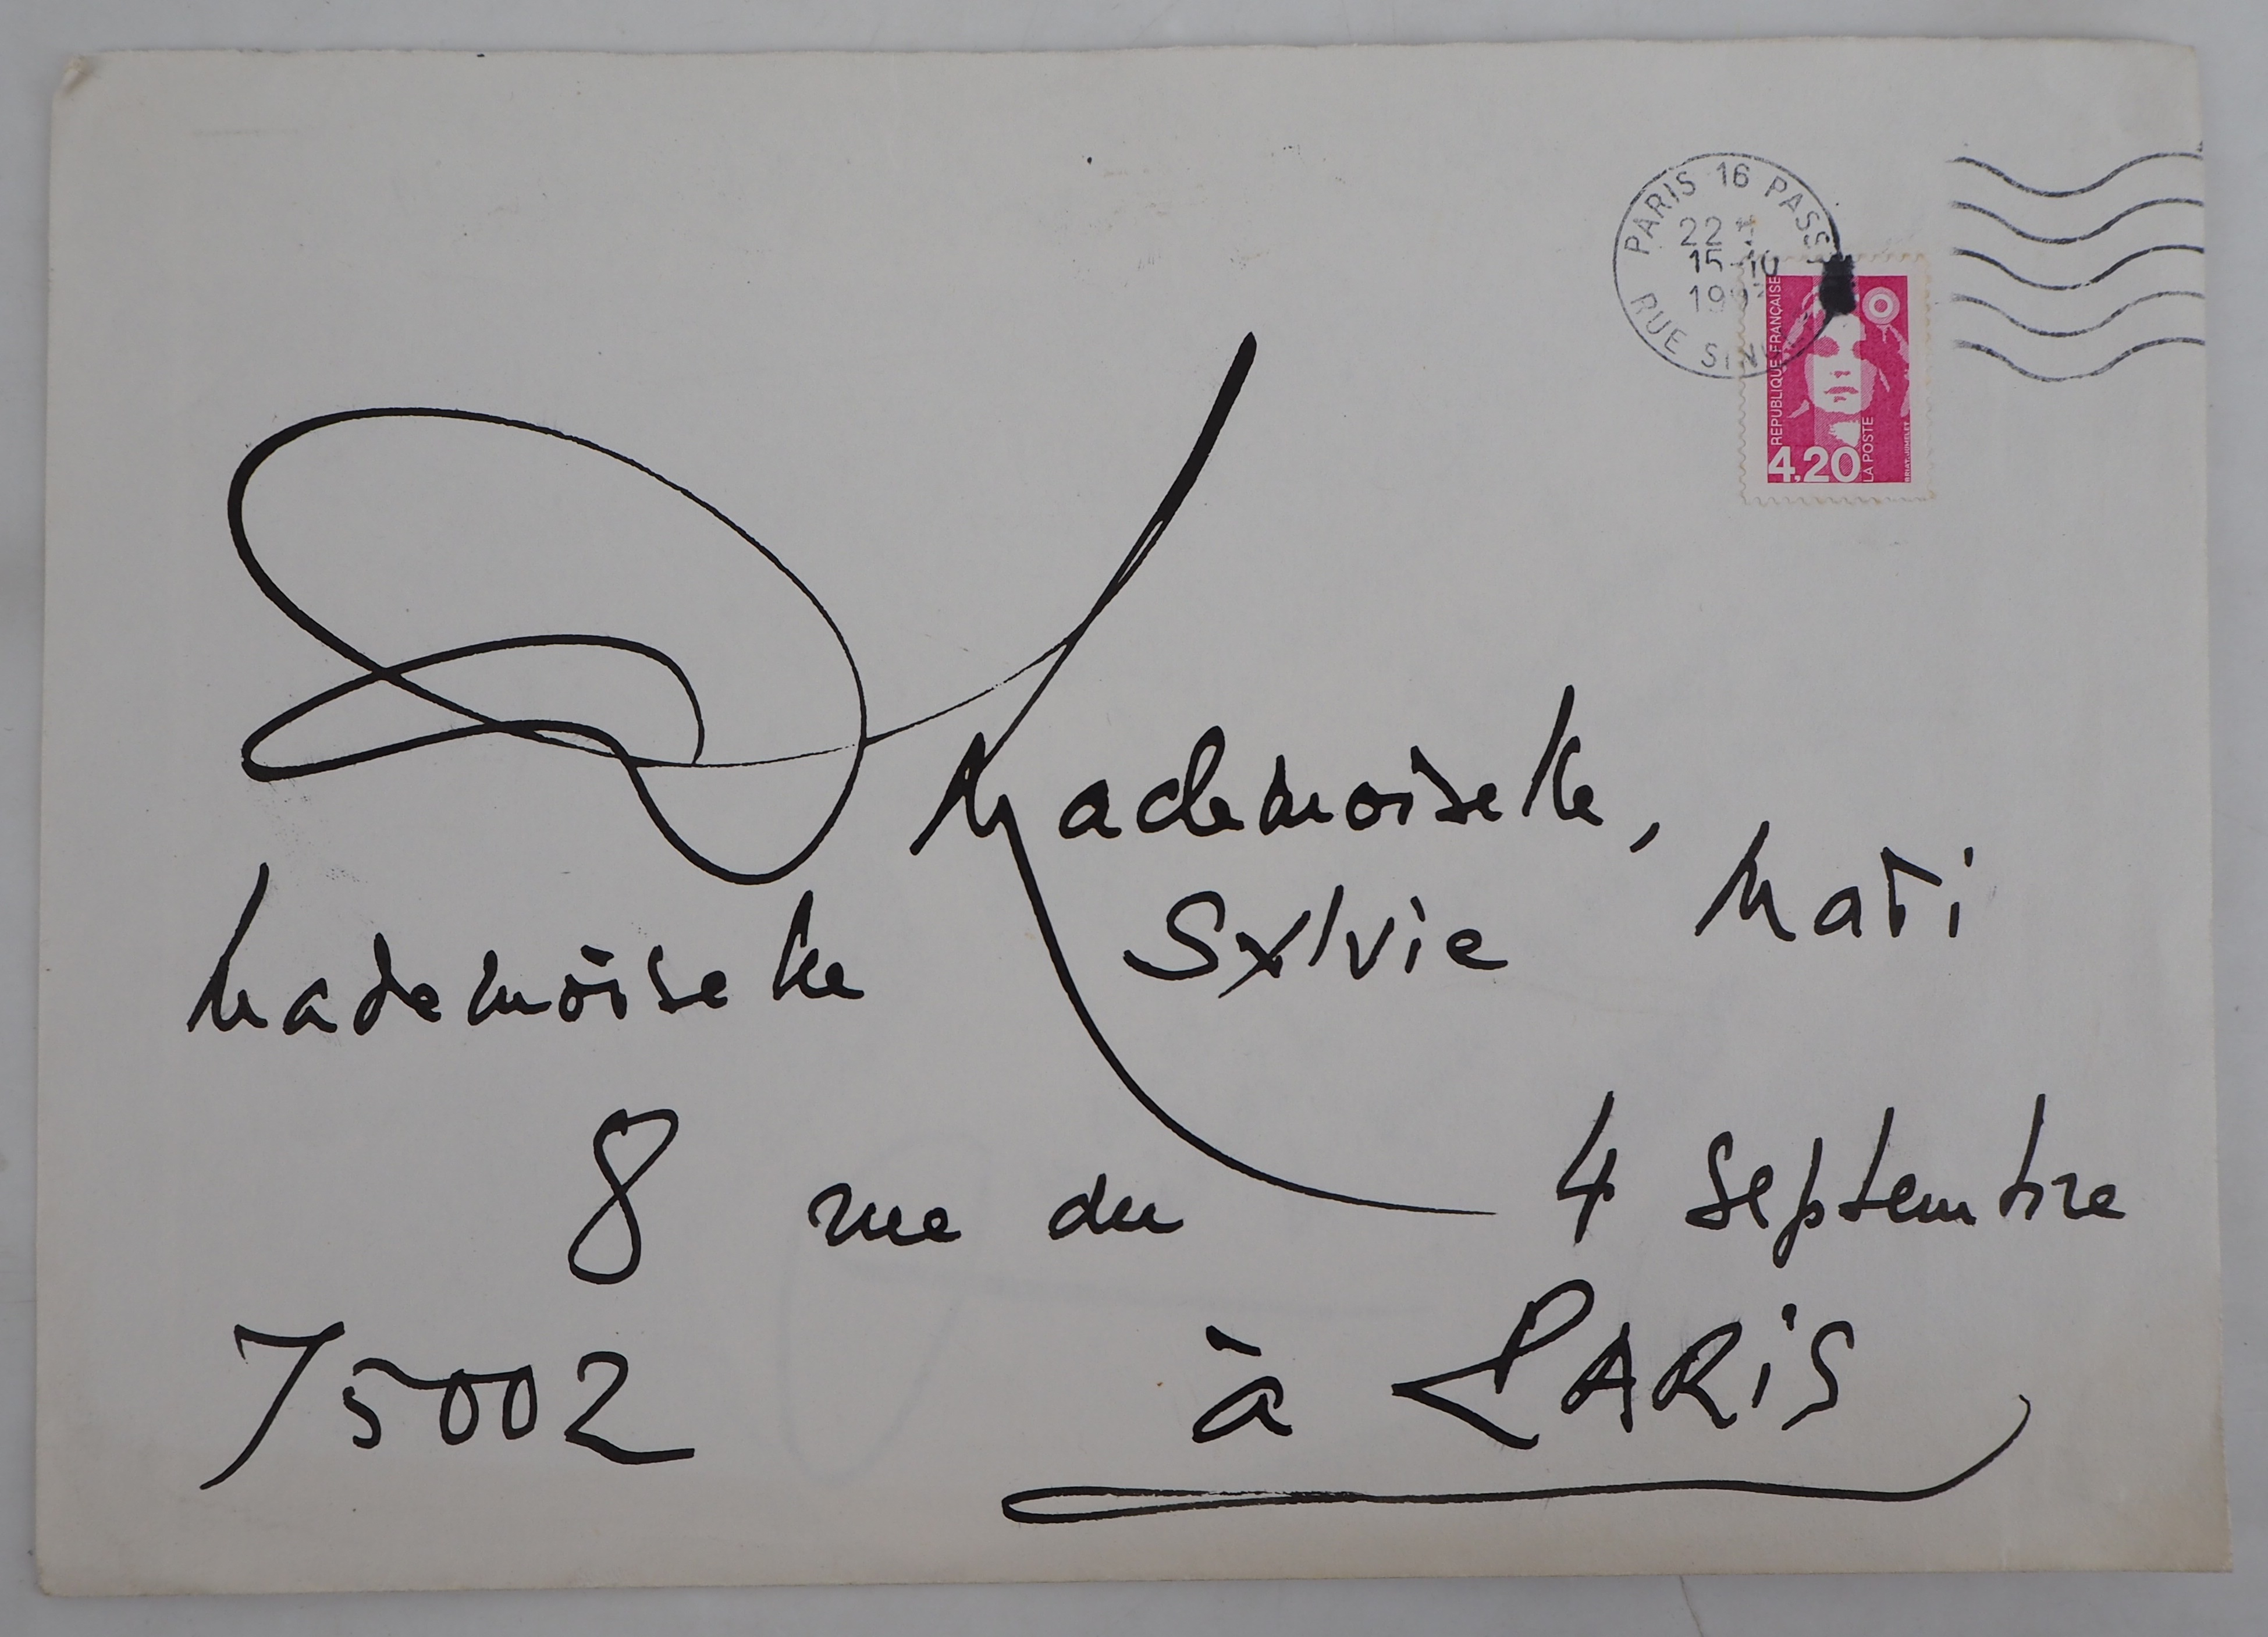 PARIS 16 PASSY
22 H
15-10
RUE SIN
REPUBLIQUE FRANÇAISE
4,20
LA POSTE
BRIAT-JUMELET
Mademoiselle,
Mademoiselle Sylvie Mati
8 rue du 4 septembre
75002 à PARiS